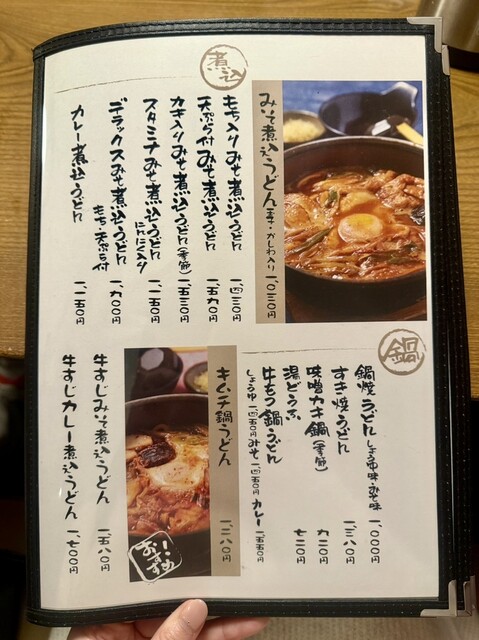 煮込
みそ煮込うどん 玉子・かしわ入り 一、〇三〇円
もち入りみそ煮込うどん 一、四三〇円
天ぷら付みそ煮込うどん 一、五九〇円
カキ入りみそ煮込うどん(季節) 一、五三〇円
スタミナみそ煮込うどん にんにく入り 一、一五〇円
デラックスみそ煮込うどん もち・天ぷら付 一、九〇〇円
カレー煮込うどん 一、一五〇円
鍋
鍋焼うどん しょうゆ味・みそ味 一、〇〇〇円
すき焼うどん 一、三八〇円
味噌カキ鍋(季節) 九二〇円
湯どうふ 七二〇円
牛もつ鍋うどん
しょうゆ 一、四五〇円 みそ 一、四五〇円 カレー 一、五五〇円
キムチ鍋うどん 一、二八〇円
おすすめ!
牛すじみそ煮込うどん 一、五八〇円
牛すじカレー煮込うどん 一、七〇〇円